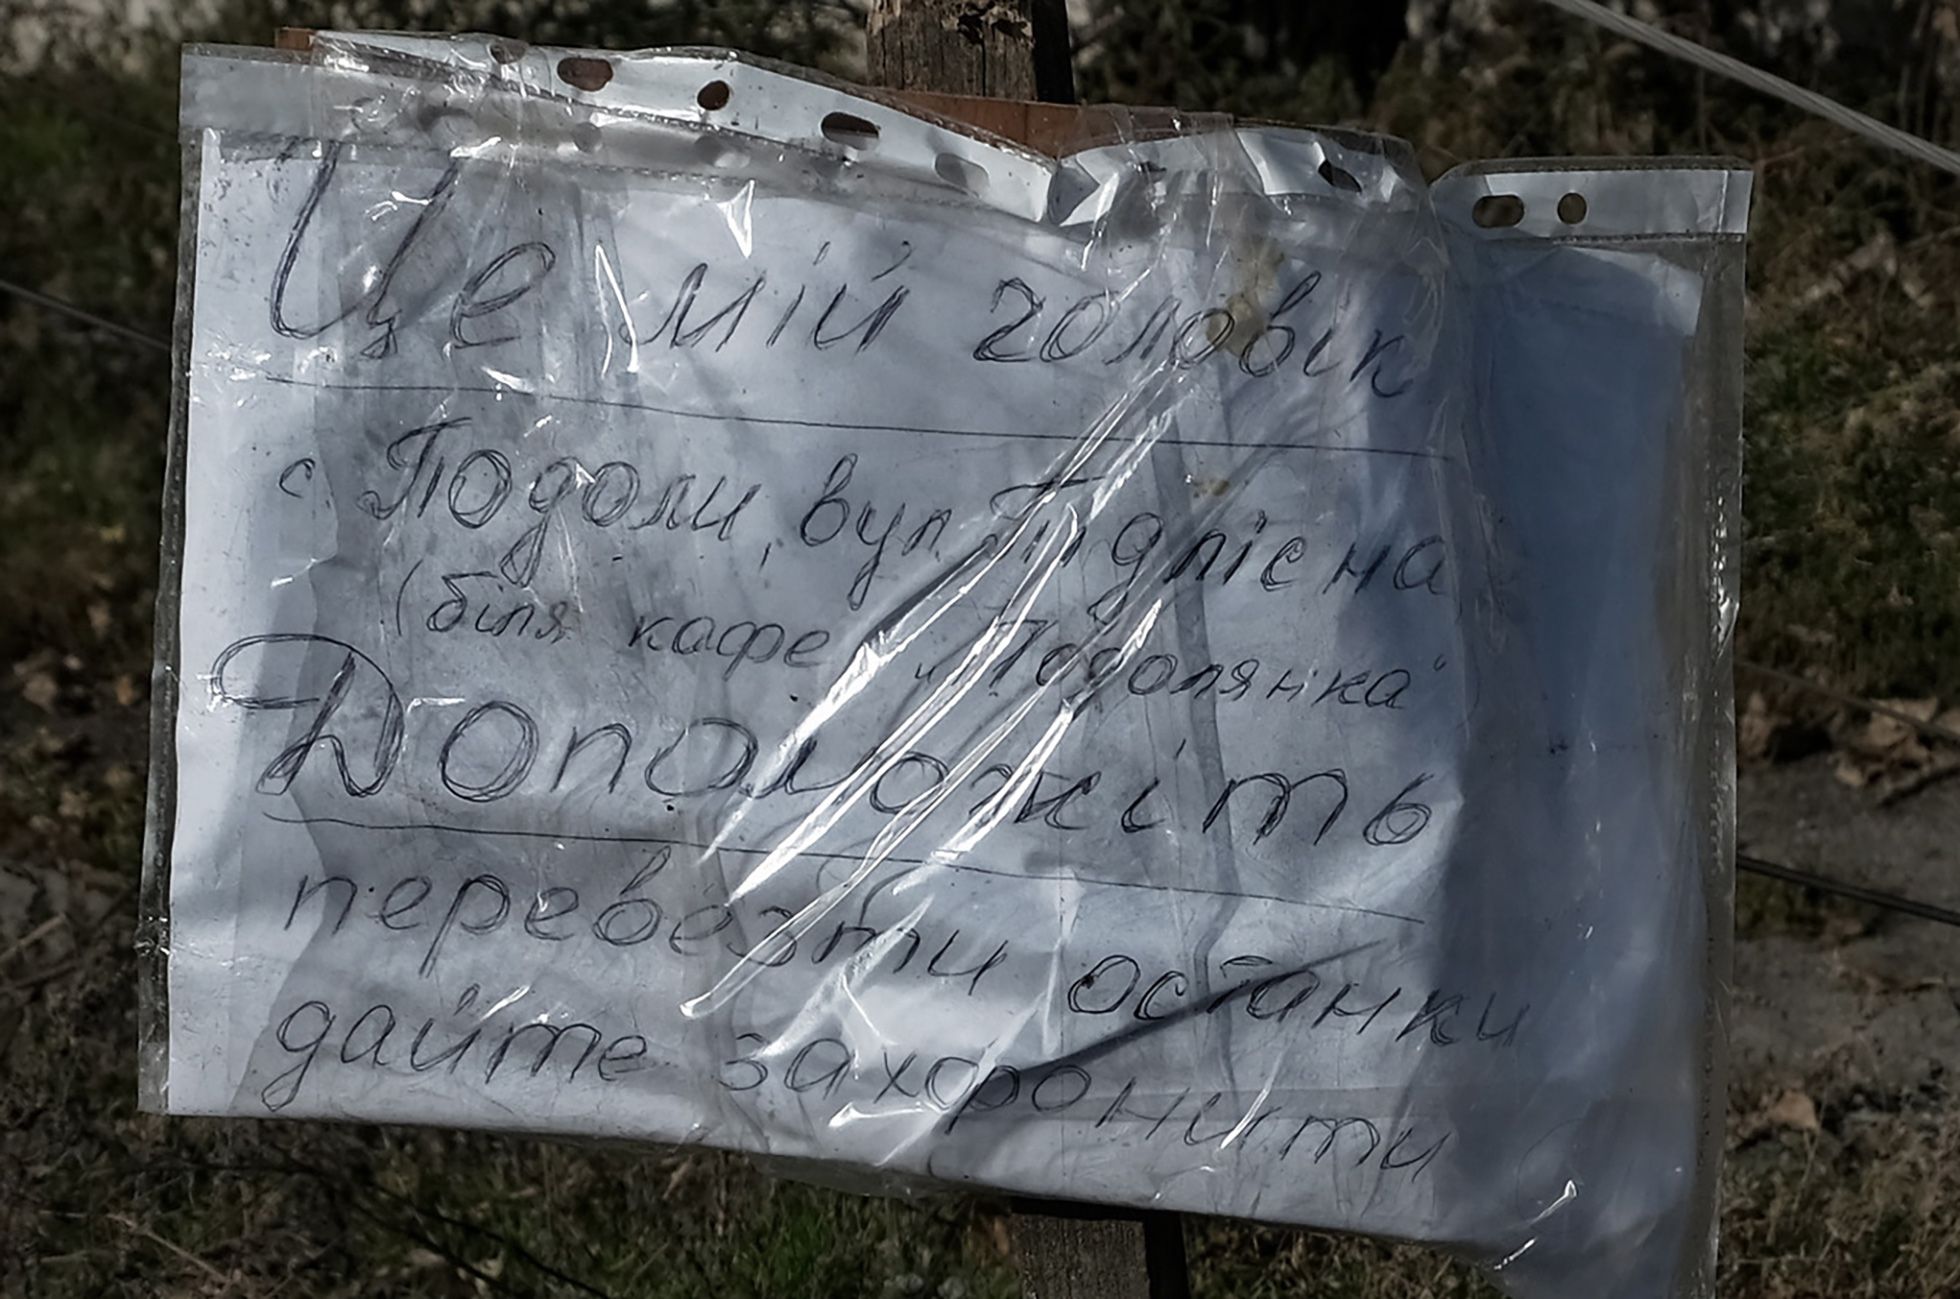 Це мій чоловік
с Подоли, вул Підлісна
(біля кафе "Подолянка"
Допоможіть
перевезти останки
дайте захоронити